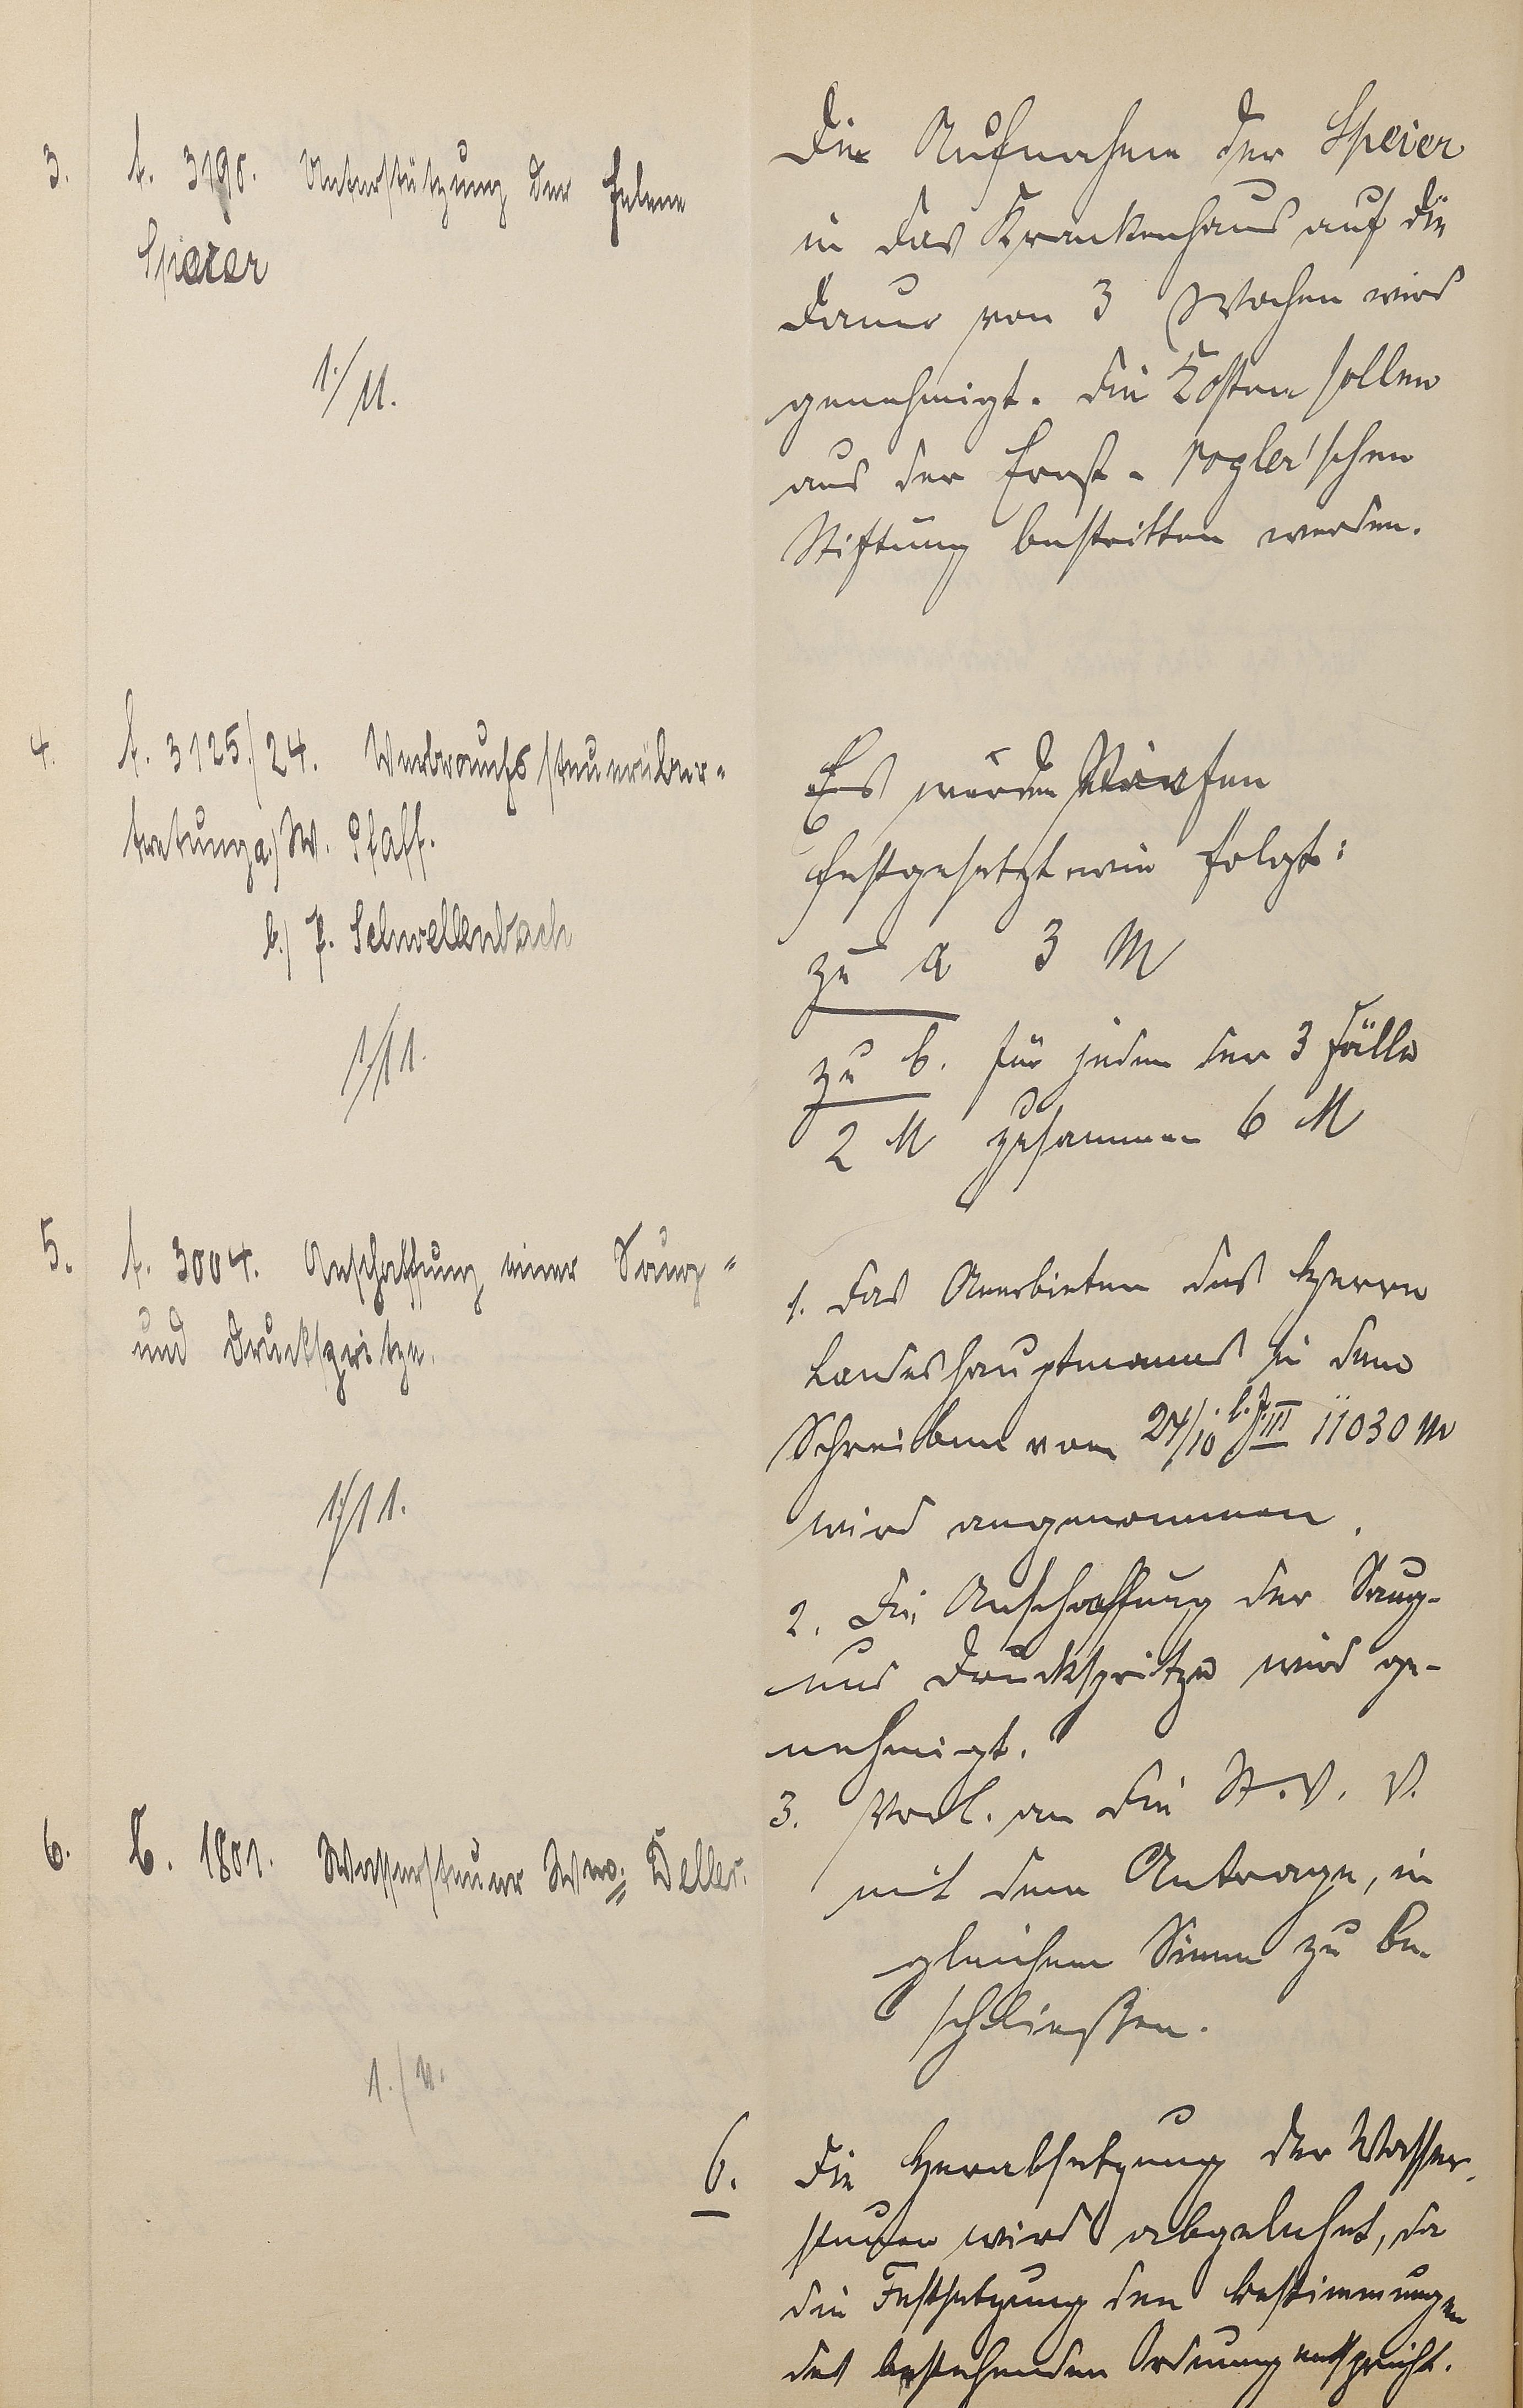 3. t. 3190. Unterstützung der Helene
Speier
1./11.
Die Aufnahme der Speier
in das Krankenhaus auf die
Dauer von 3 Wochen wird
genehmigt. Die Kosten sollen
aus der Ernst-Vogler'schen
Stiftung bestritten werden.
4. t. 3125./24. Verbrauchssteuerüber-
tretung a) W. Pfaff.
b.) F. Schwellenbach
1/11.
Es werden Strafen
festgesetzt wie folgt:
zu a 3 M
zu b. für jeden der 3 Fälle
2 M zusammen 6 M
5. t. 3004. Anschaffung einer Saug-
und Druckspritze.
1/11.
1. Das Anerbieten des Herrn
Landeshauptmanns in dem
Schreiben vom 24/10 l. J. III 11030 M
wird angenommen.
2. Die Anschaffung der Saug-
und Druckspritze wird ge-
nehmigt.
3. Vorl. an die St. V. V.
mit dem Antrage, in
gleichem Sinne zu be-
schließen.
6. C. 1801. Wassersteuer Wwe. Deller.
1./11.
6. Die Herabsetzung der Wasser-
steuer wird abgelehnt, da
die Festsetzung den Bestimmungen
der bestehenden Ordnung entspricht.